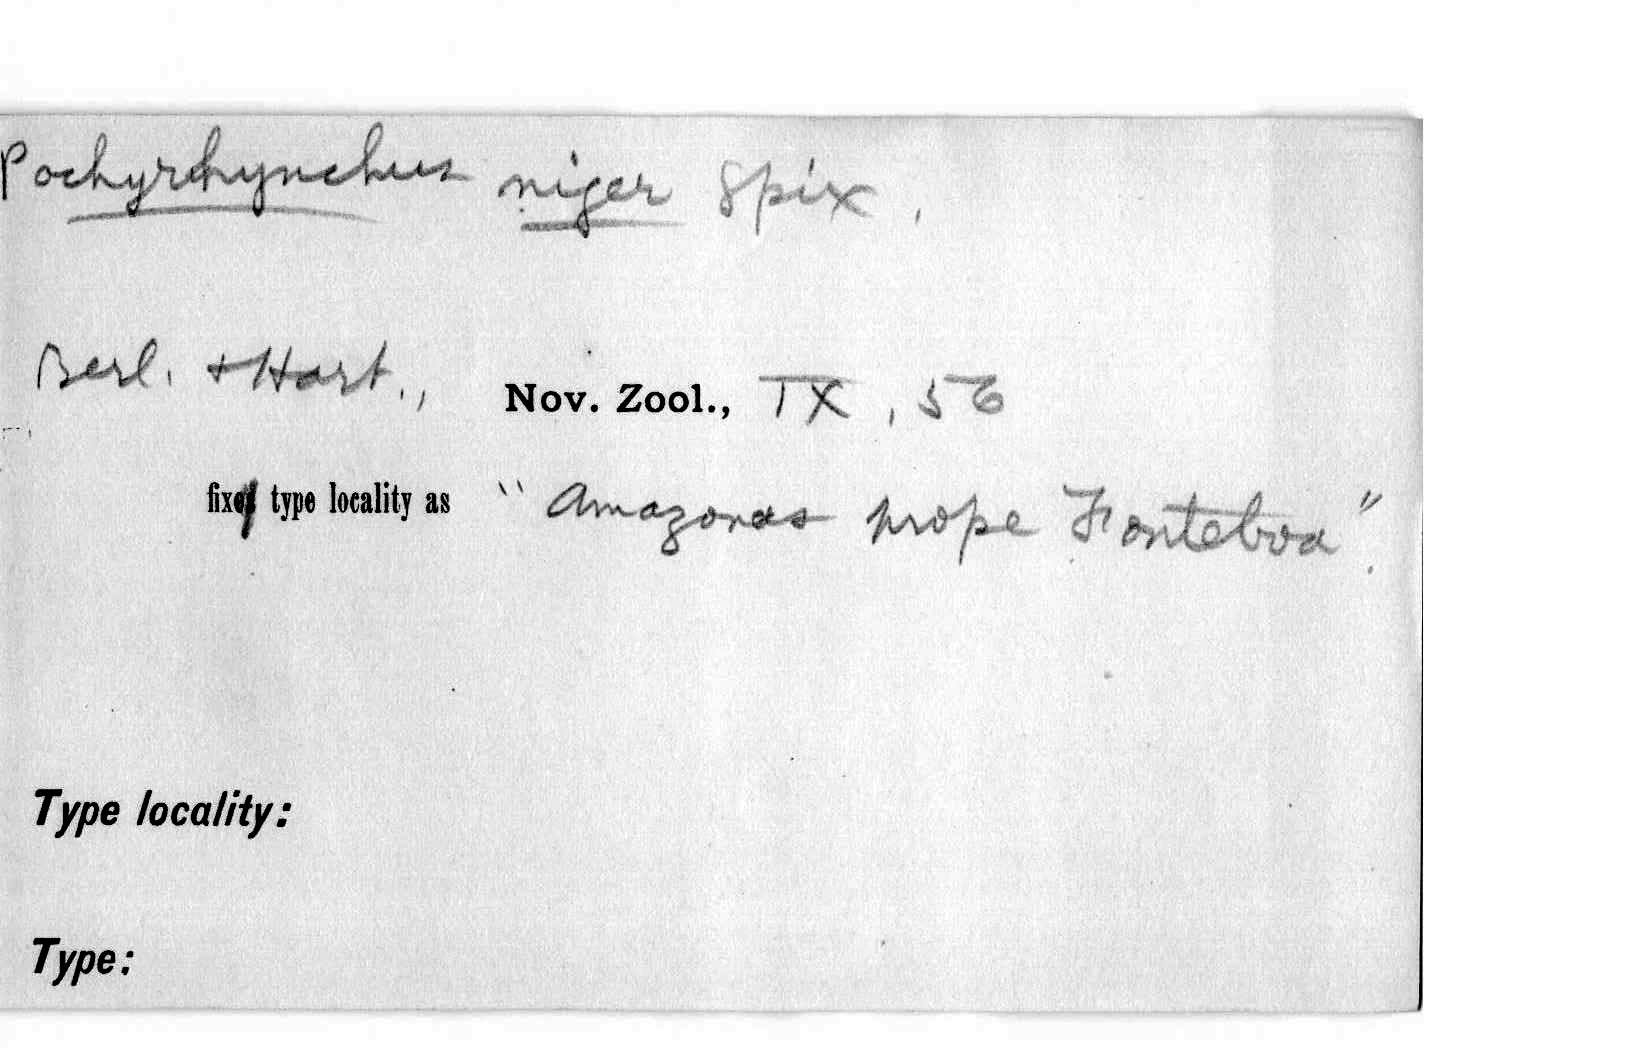 Pachyrhynchus niger Spix,
Berl. + Hart., Nov. Zool., IX, 56
fix type locality as "Amazonas prope Fonteboa".
Type locality:
Type: